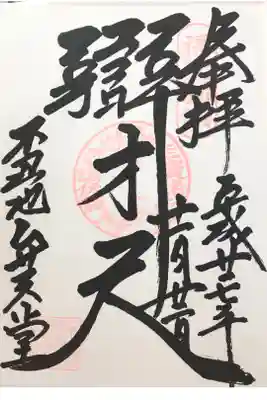 奉拝
平成廿七年
十一月廿一日
辯才天
不忍池弁天堂